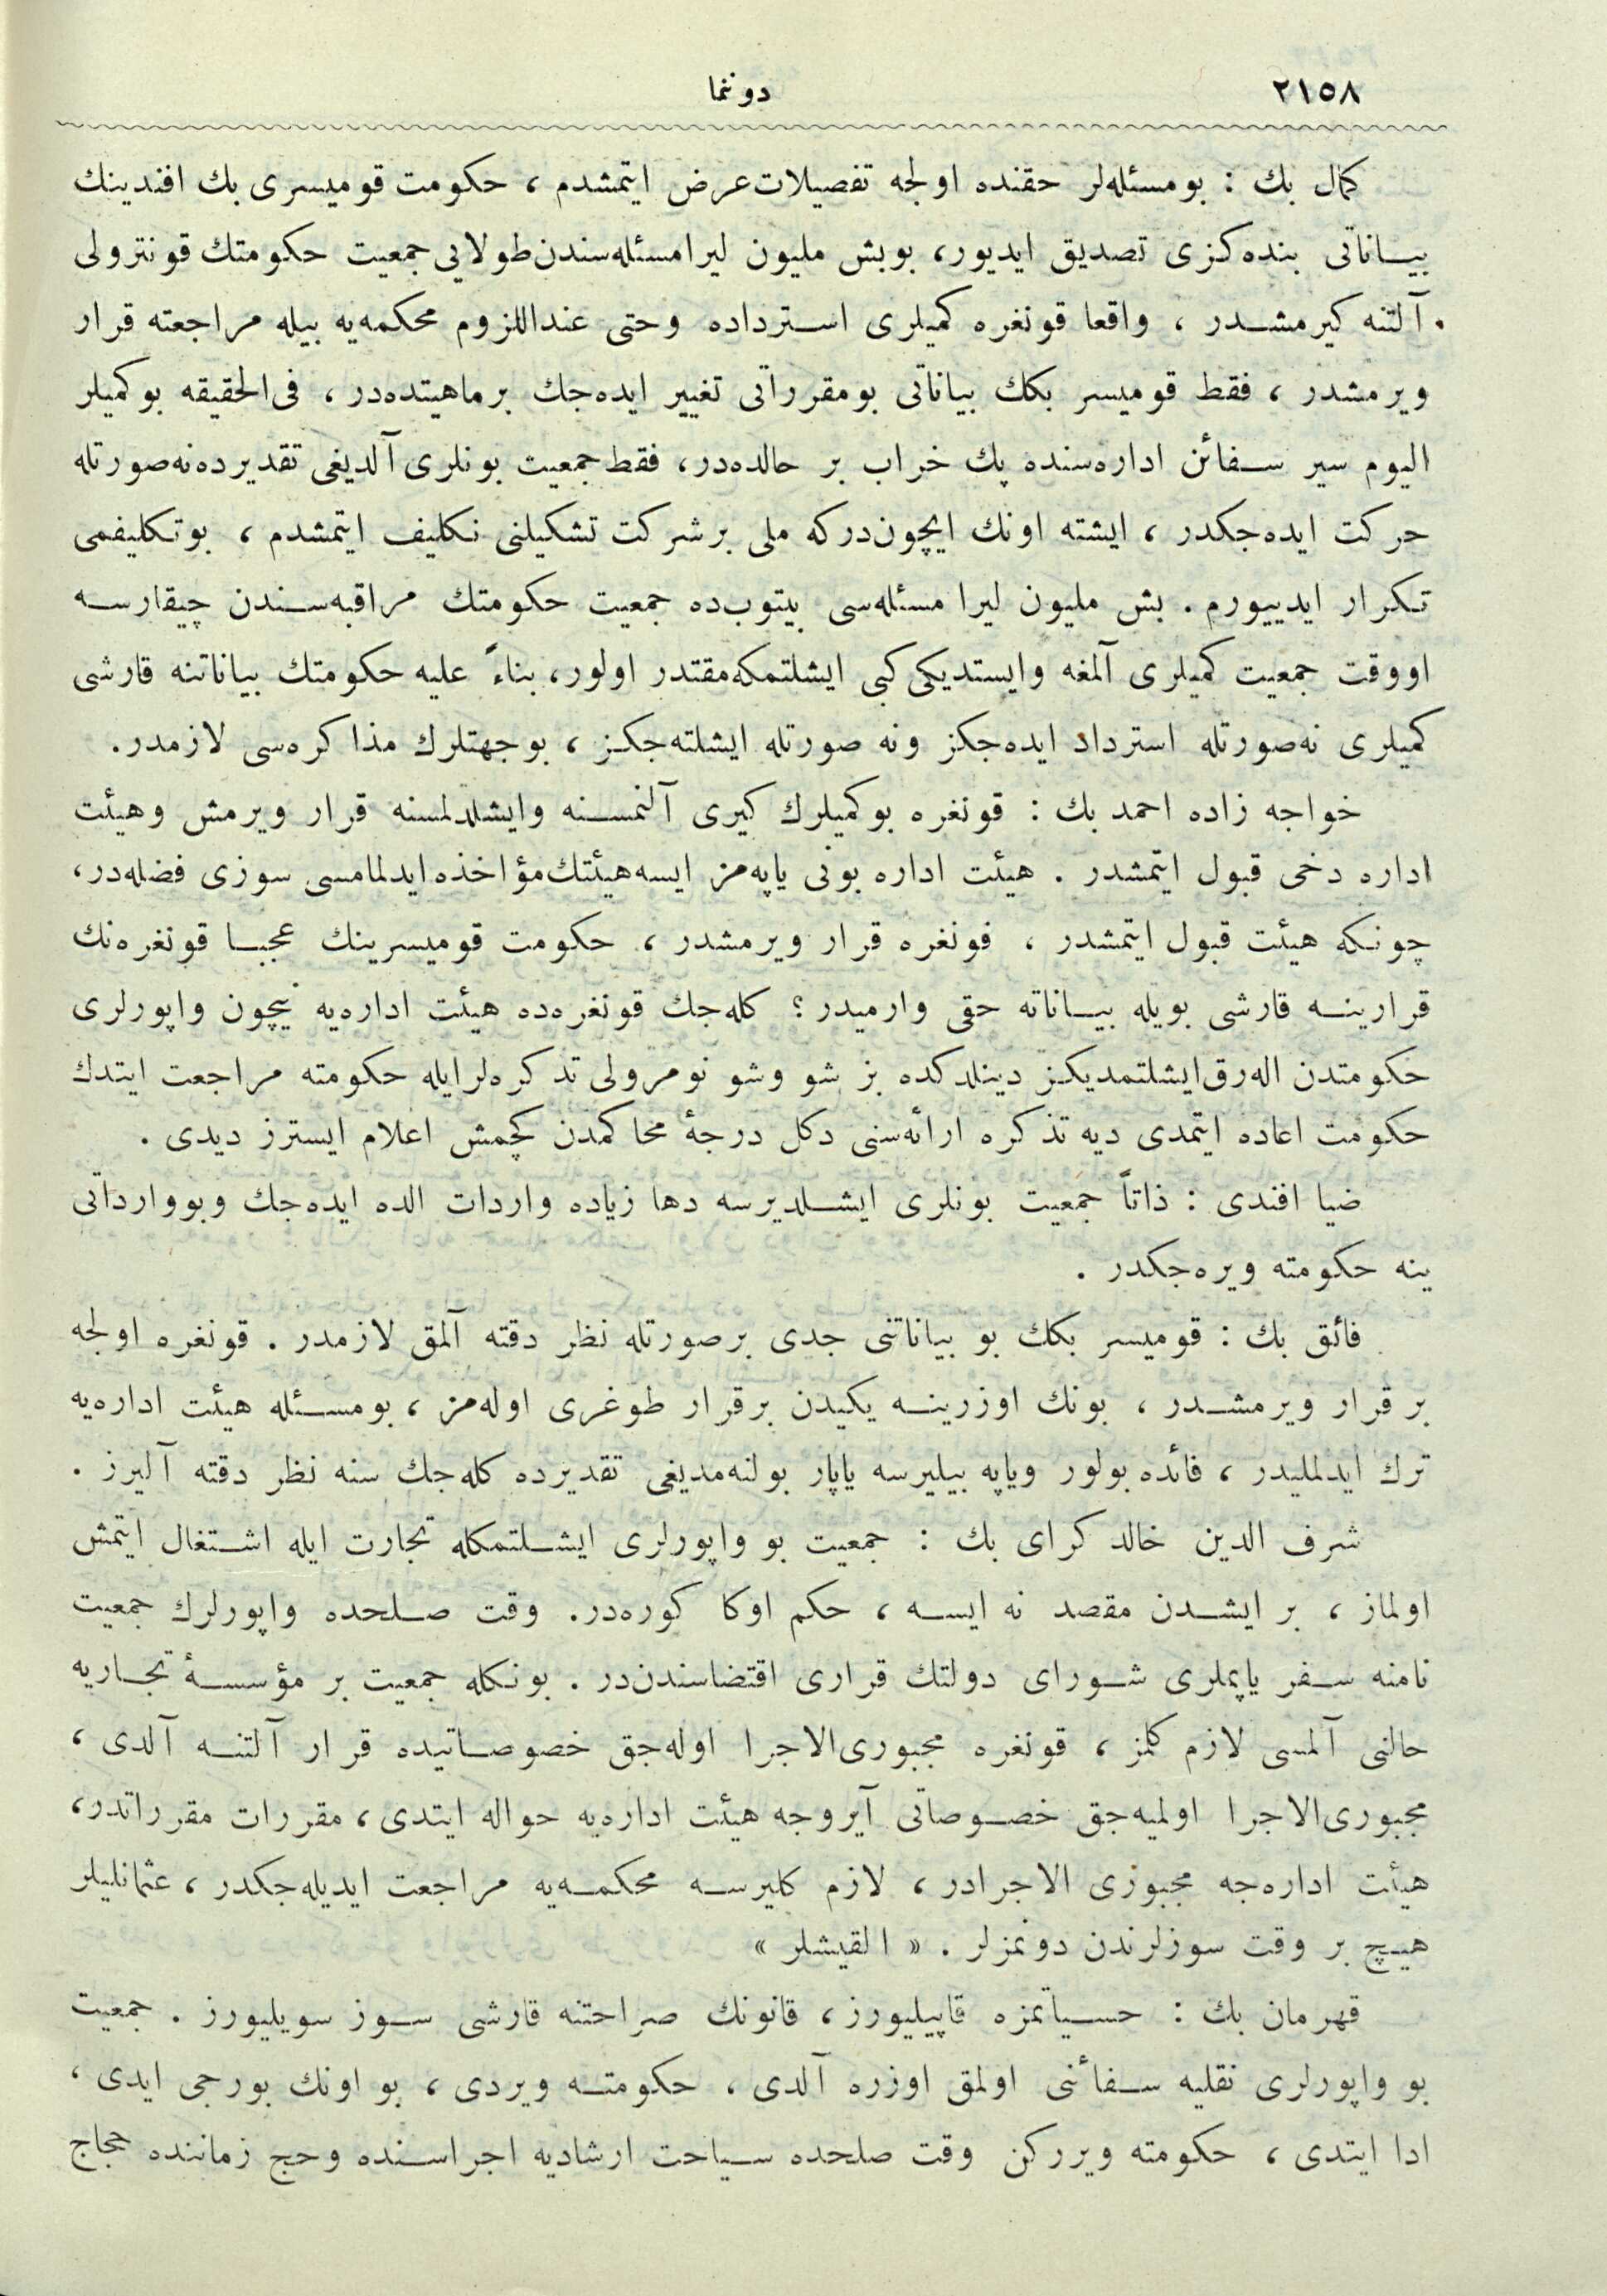 ٢١٥٨
دوننما
كمال بك : بومسئله‌لر حقنده اولجه تفصيلات عرض ايتمشدم ، حكومت قوميسرى بك افندينك
بيـاناتى بنده‌كزى تصديق ايديور، بوبش مليون ليرامسئله‌سندن طولايى جمعيت حكومتك قونترولى
آلتنه كيرمشـدر ، واقعا قونغره كميلرى اسـترداده وحتى عنداللزوم محكمه‌يه بيله مراجعته قرار
ويرمشدر ، فقط قوميسر بكك بياناتى بومقرراتى تغيير ايده‌جك برماهيتده‌در ، فى‌الحقيقه بوكميلر
اليوم سير سـفائن اداره‌سنده پك خراب بر حالده‌در، فقط جمعيت بونلرى آلديغى تقديرده نه‌صورتله
حركت ايده‌جكدر ، ايشته اونك ايچون‌دركه ملى برشركت تشكيلنى تكليف ايتمشدم ، بوتكليفمى
تـكرار ايدييورم . بش مليون ليرا مسئله‌سى بيتوب‌ده جمعيت حكومتك مراقبه‌سـندن چيقارسـه
اووقت جمعيت كميلرى آلمغه وايستديكى كبى ايشلتمكه مقتدر اولور، بناءً عليه حكومتك بياناتنه قارشى
كميلرى نه‌صورتله استرداد ايده‌جكز ونه صورتله ايشلته‌جكـز ، بوجهتلرك مذاكره‌سى لازمدر.
خواجه زاده احمد بك : قونغره بوكميلرك كيرى آلنمسـنه وايشلدلمسنه قرار ويرمش وهيئت
اداره دخى قبول ايتمشدر . هيئت اداره بونى ياپه‌مز ايسه هيئتك مؤاخذه ايدلمامسى سوزى فضله‌در،
چونـكه هيئت قبول ايتمشدر ، قونغره قرار ويرمشدر ، حكومت قوميسرينك عجبـا قونغره‌نك
قرارينـه قارشى بويله بيـاناته حقى وارميدر ؟ كله‌جك قونغره‌ده هيئت اداره‌يه نيچون واپورلرى
حكومتدن اله‌رق ايشلتمديكـز دينلدكده بز شو وشو نومرولى تذكره‌لرايله حكومته مراجعت ايتدك
حكومت اعاده ايتمدى ديه تذكره ارائه‌سنى دكل درجهٔ محاكمدن كچمش اعلام ايسترز ديدى .
ضيا افندى : ذاتاً جمعيت بونلرى ايشـلديرسه دها زياده واردات الده ايده‌جك وبووارداتى
ينه حكومته ويره‌جكدر .
فائق بك : قوميسر بكك بو بياناتنى جدى برصورتله نظر دقته آلمق لازمدر . قونغره اولجه
بر قرار ويرمشـدر ، بونك اوزرينـه يكيدن برقرار طوغرى اوله‌مز ، بومسـئله هيئت اداره‌يه
ترك ايدلمليدر ، فائده بولور وياپه بيليرسه ياپار بولنه‌مديغى تقديرده كله‌جك سنه نظر دقته آليرز .
شرف الدين خالد كراى بك : جمعيت بو واپورلرى ايشـلتمكله تجارت ايله اشـتغال ايتمش
اولماز ، بر ايشـدن مقصد نه ايسـه ، حكم اوكا كوره‌در. وقت صـلحده واپورلرك جمعيت
نامنه سـفر ياپملرى شـوراى دولتك قرارى اقتضاسندن‌در . بونـكله جمعيت بر مؤسسـهٔ تجـاريه
حالنى آلمسى لازم كلمز ، قونغره مجبورى‌الاجرا اوله‌جق خصوصـاتيده قرار آلتنـه آلدى ،
مجبورى‌الاجرا اولميه‌جق خصـوصاتى آيروجه هيئت اداره‌يه حواله ايتدى ، مقررات مقرراتدر،
هيئت اداره‌جه مجبوزى الاجرادر ، لازم كليرسـه محكمـه‌يه مراجعت ايديله‌جكدر ، عثمانليلر
هيـچ بر وقت سوزلرندن دونمزلر . « القيشلر »
قهرمان بك : حسـياتمزه قاپيليورز ، قانونك صراحتنه قارشى سـوز سويليورز . جمعيت
بو واپورلرى نقليه سـفائنى اولمق اوزره آلدى ، حكومتـه ويردى ، بو اونك بورجى ايدى ،
ادا ايتدى ، حكومته ويرركن وقت صلحده سـياحت ارشاديه اجراسـنده وحج زماننده حجاج